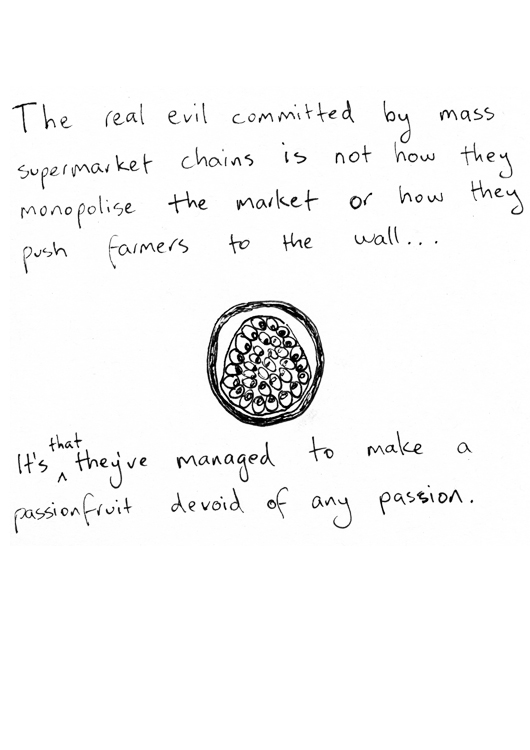 The real evil committed by mass
supermarket chains is not how they
monopolise the market or how they
push farmers to the wall...
It's that they've managed to make a
passionfruit devoid of any passion.